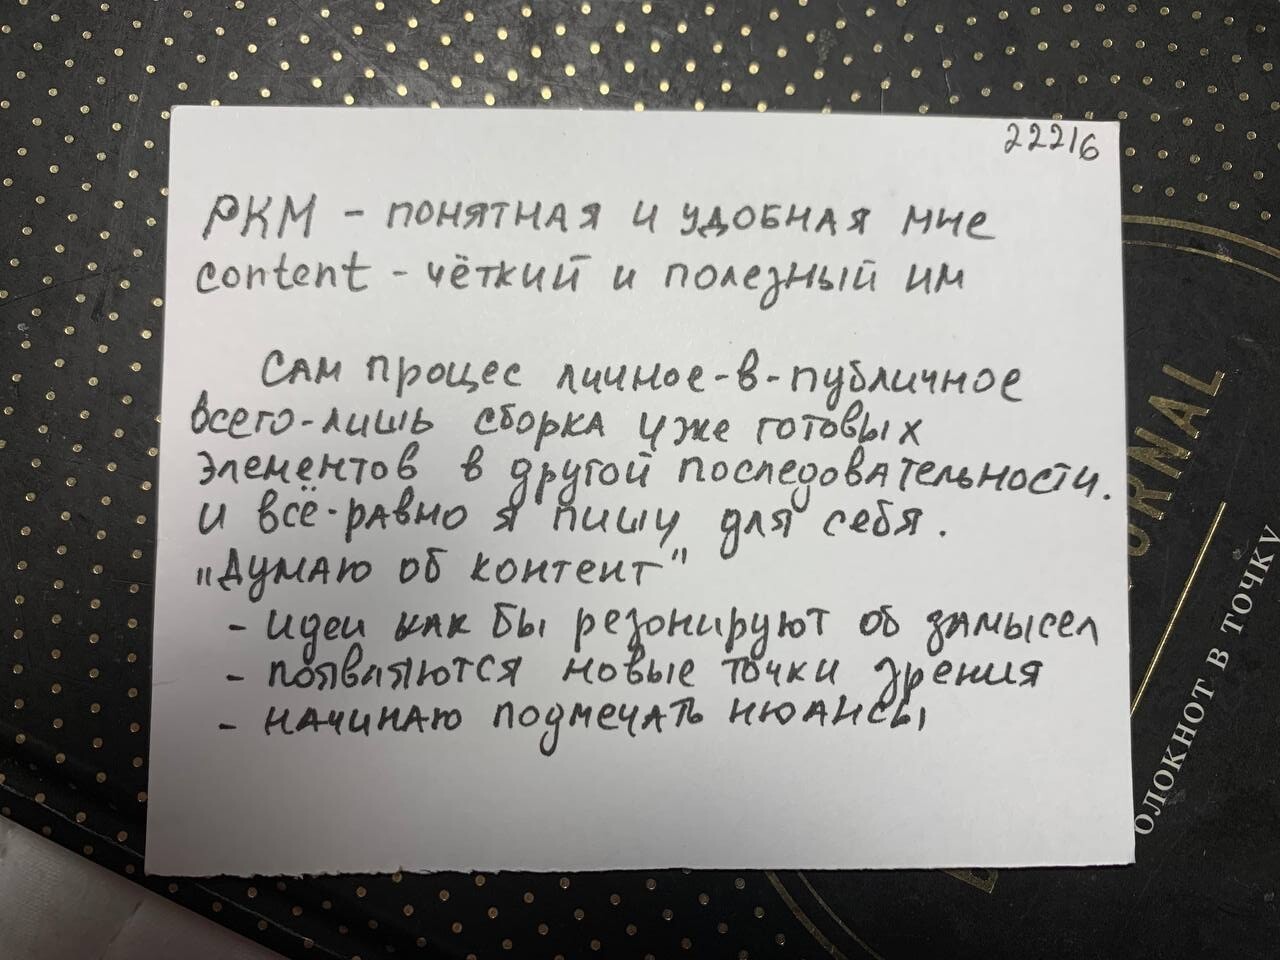 22216
PKM - понятная и удобная мне
content - чёткий и полезный им
Сам процес личное-в-публичное
всего-лишь сборка уже готовых
элементов в другой последовательности.
и всё-равно я пишу для себя.
"Думаю об контент"
- идеи как бы резонируют об замысел
- появляются новые точки зрения
- начинаю подмечать нюансы
URNAL
ОЛОКНОТ В ТОЧКУ